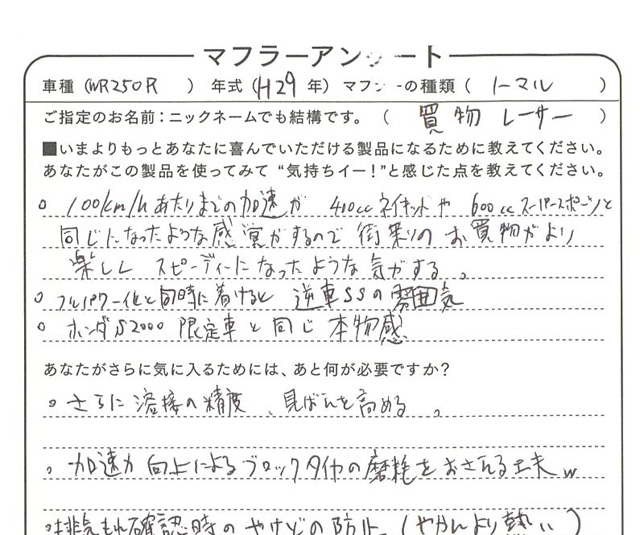 マフラーアンケート
車種（WR250R　）年式（H29年）マフラーの種類（ノーマル　）
ご指定のお名前：ニックネームでも結構です。（　買物レーサー　）
■いまよりもっとあなたに喜んでいただける製品になるために教えてください。
あなたがこの製品を使ってみて“気持ちイー！”と感じた点を教えてください。
○ 100km/hあたりまでの加速が 400ccネイキッドや 600ccスーパースポーツと
同じになったような感じがするので 街乗りの お買物がより
楽しく スピーディーになったような気がする。
○ フルパワー化と同時に着けると 逆車SSの雰囲気
○ ホンダS2000 限定車と同じ 本物感
あなたがさらに気に入るためには、あと何が必要ですか？
○ さらに 溶接の精度、見ばえを高める。
○ 加速力 向上によるブロックタイヤの磨耗をおさえる工夫w
○ 排気もれ確認時の やけどの防止（やかんより熱い）